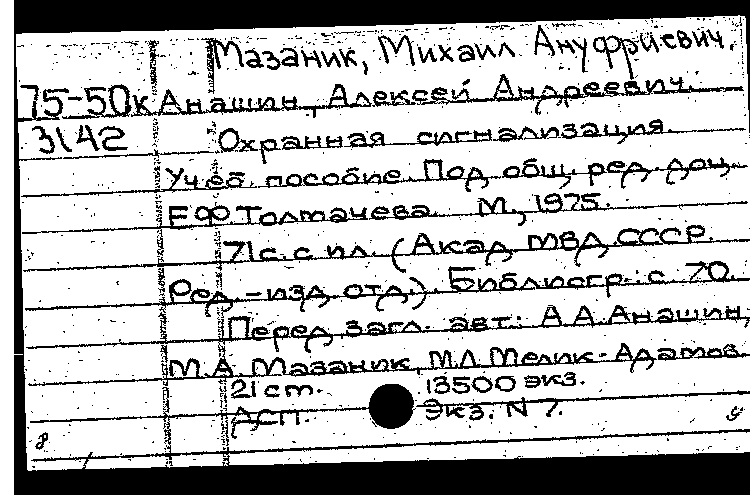 Мазаник, Михаил Ануфриевич.
75-50к Анашин, Алексей Андреевич.
3142 Охранная сигнализация.
Учеб. пособие. Под общ. ред. доц.
Е Ф Толмачева. М., 1975.
71 с. с ил. (Акад МВД СССР.
Ред.-изд. отд.). Библиогр.: с 70.
Перед загл. авт.: А А. Анашин,
М.А. Мазаник, М.Л. Мелик-Адамов.
21 см. 13500 экз.
ДСП. Экз. N 7.